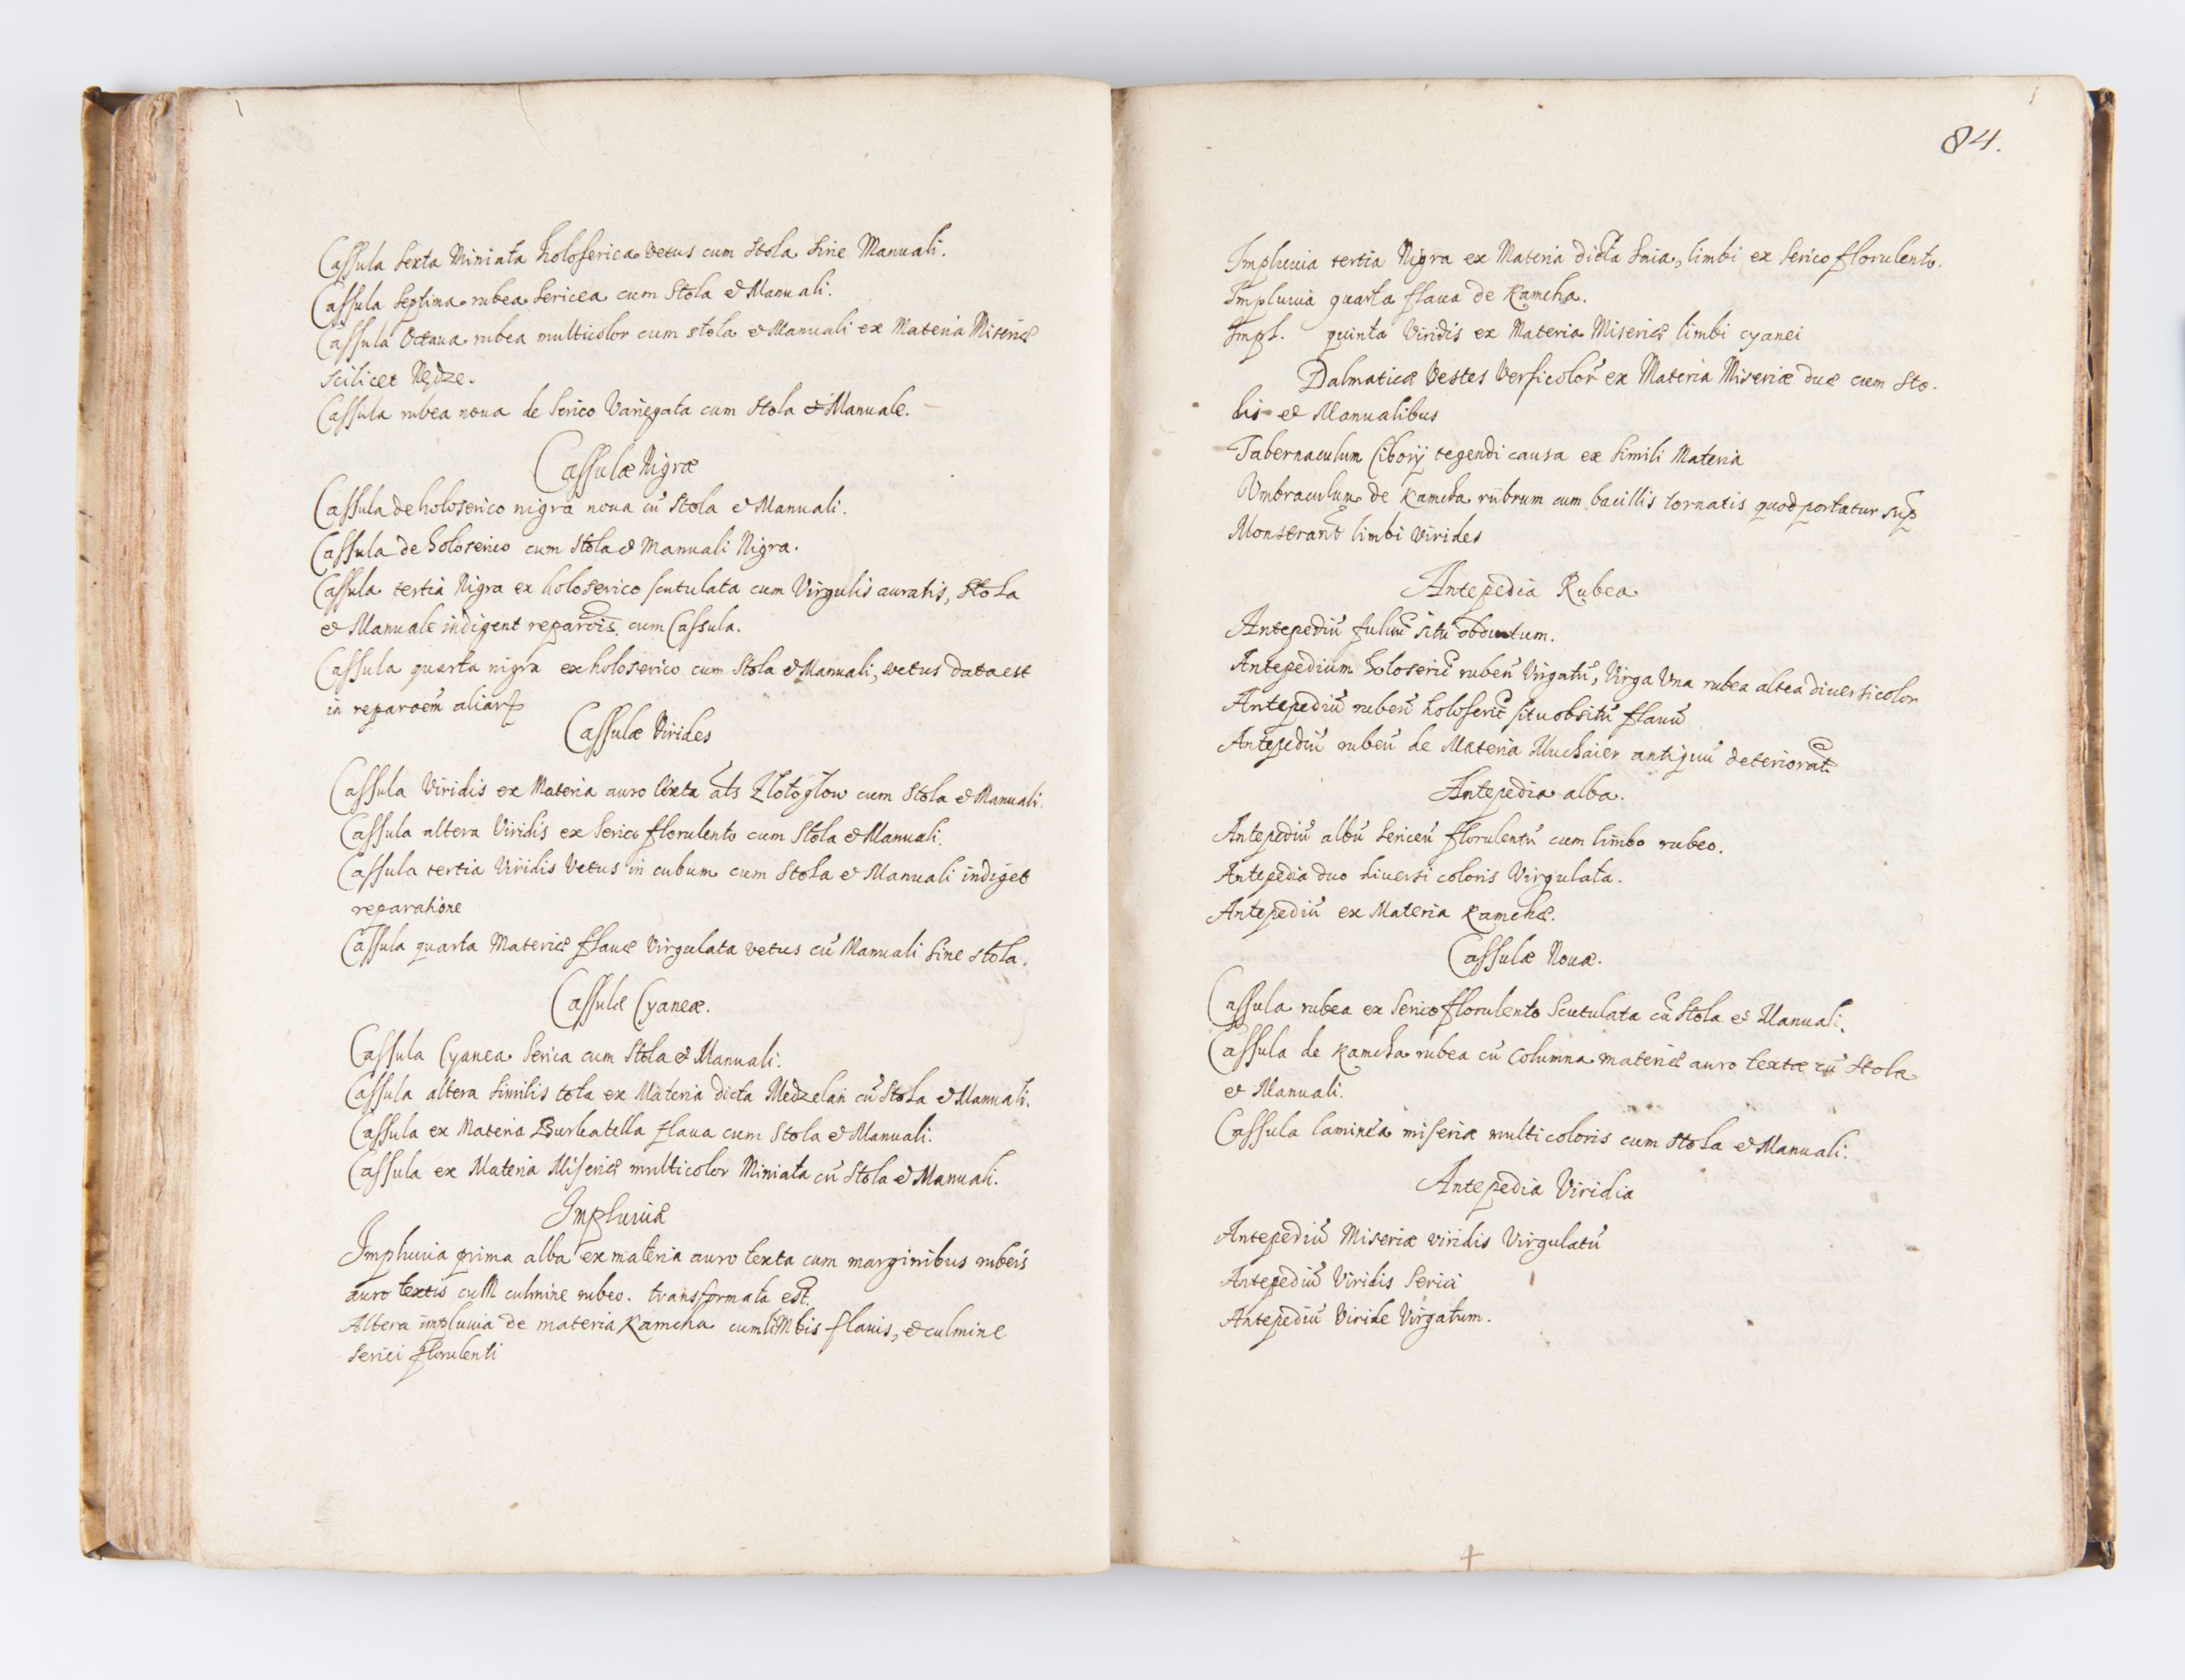 Cassula Sexta Miniata holoserica vetus cum Stola Sine Manuali.
Cassula Septima rubea Sericea cum Stola & Manuali.
Cassula Octaua rubea multicolor cum stola & Manuali ex Materia Miseriæ
scilicet Nędze.
Cassula rubea noua de Serico Variegata cum Stola & Manuale.
Cassulæ Nigræ
Cassula de holoserico nigra noua cū Stola & Manuali.
Cassula de holoserico cum Stola & Manuali Nigra.
Cassula tertia Nigra ex holoserico scutulata cum Virgulis auratis, Stola
& Manuale indigent cum Cassula.
Cassula quarta nigra ex holoserico cum Stola & Manuali, vetus data est
in reparoēm aliar
Cassulæ Virides
Cassula Viridis ex Materia auro texta als Złotogłow cum Stola & Manuali.
Cassula altera Viridis ex Serico florulento cum Stola & Manuali.
Cassula tertia Viridis Vetus in cubum cum Stola & Manuali indiget
reparatione
Cassula quarta Materiæ flauæ Virgulata vetus cū Manuali Sine stola.
Cassulæ Cyaneæ.
Cassula Cyanea Serica cum Stola & Manuali.
Cassula altera Similis tota ex Materia dicta Medzelan cū Stola & Manuali.
Cassula ex Materia Burkatella flaua cum Stola & Manuali.
Cassula ex Materia Miseriæ multicolor Miniata cū Stola & Manuali.
Impluuiæ
Impluuia prima alba ex materia auro texta cum marginibus rubeis
auro textis cum culmine rubeo. transformata est.
Altera impluuia de materia Kamcha cum limbis flauis, & culmine
Serici florulenti
84.
Impluuia tertia Nigra ex Materia dicta Saia, limbi ex Serico florulento.
Impluuia quarta flaua de Kamcha.
Impl. quinta Viridis ex Materia Miseriæ limbi cyanei
Dalmaticæ Vestes Versicolor ex Materia Miseriæ duæ cum Sto-
lis & Manualibus
Tabernaculum Cibory tegendi causa ex Simili Materia
Vmbraculum de Kamcha rubrum cum bacillis tornatis quod portatur sup
Monstrant limbi Virides
Antepedia Rubea
Antepediū fuluū situ obductum.
Antepedium holoseric rubeū Virgatū, Virga Vna rubea altea diuersicolor
Antepediū rubeū holoseric situ obsitū flauū
Antepediū rubeū de Materia Muchaier antiquū deteriorat
Antepedia alba.
Antepediū albū Sericeū florulentū cum limbo rubeo.
Antepedia duo diuersi coloris Virgulata.
Antepediū ex Materia Kamchæ.
Cassulæ Nouæ.
Cassula rubea ex Serico florulento Scutulata cū Stola & Manuali.
Cassula de Kamcha rubea cū Columna materiæ auro textæ cū Stola
& Manuali.
Cassula laminea miseriæ multicoloris cum Stola & Manuali.
Antepedia Viridia
Antepediū Miseriæ viridis Virgulatū
Antepediū Viridis Serici
Antepediū Viride Virgatum.